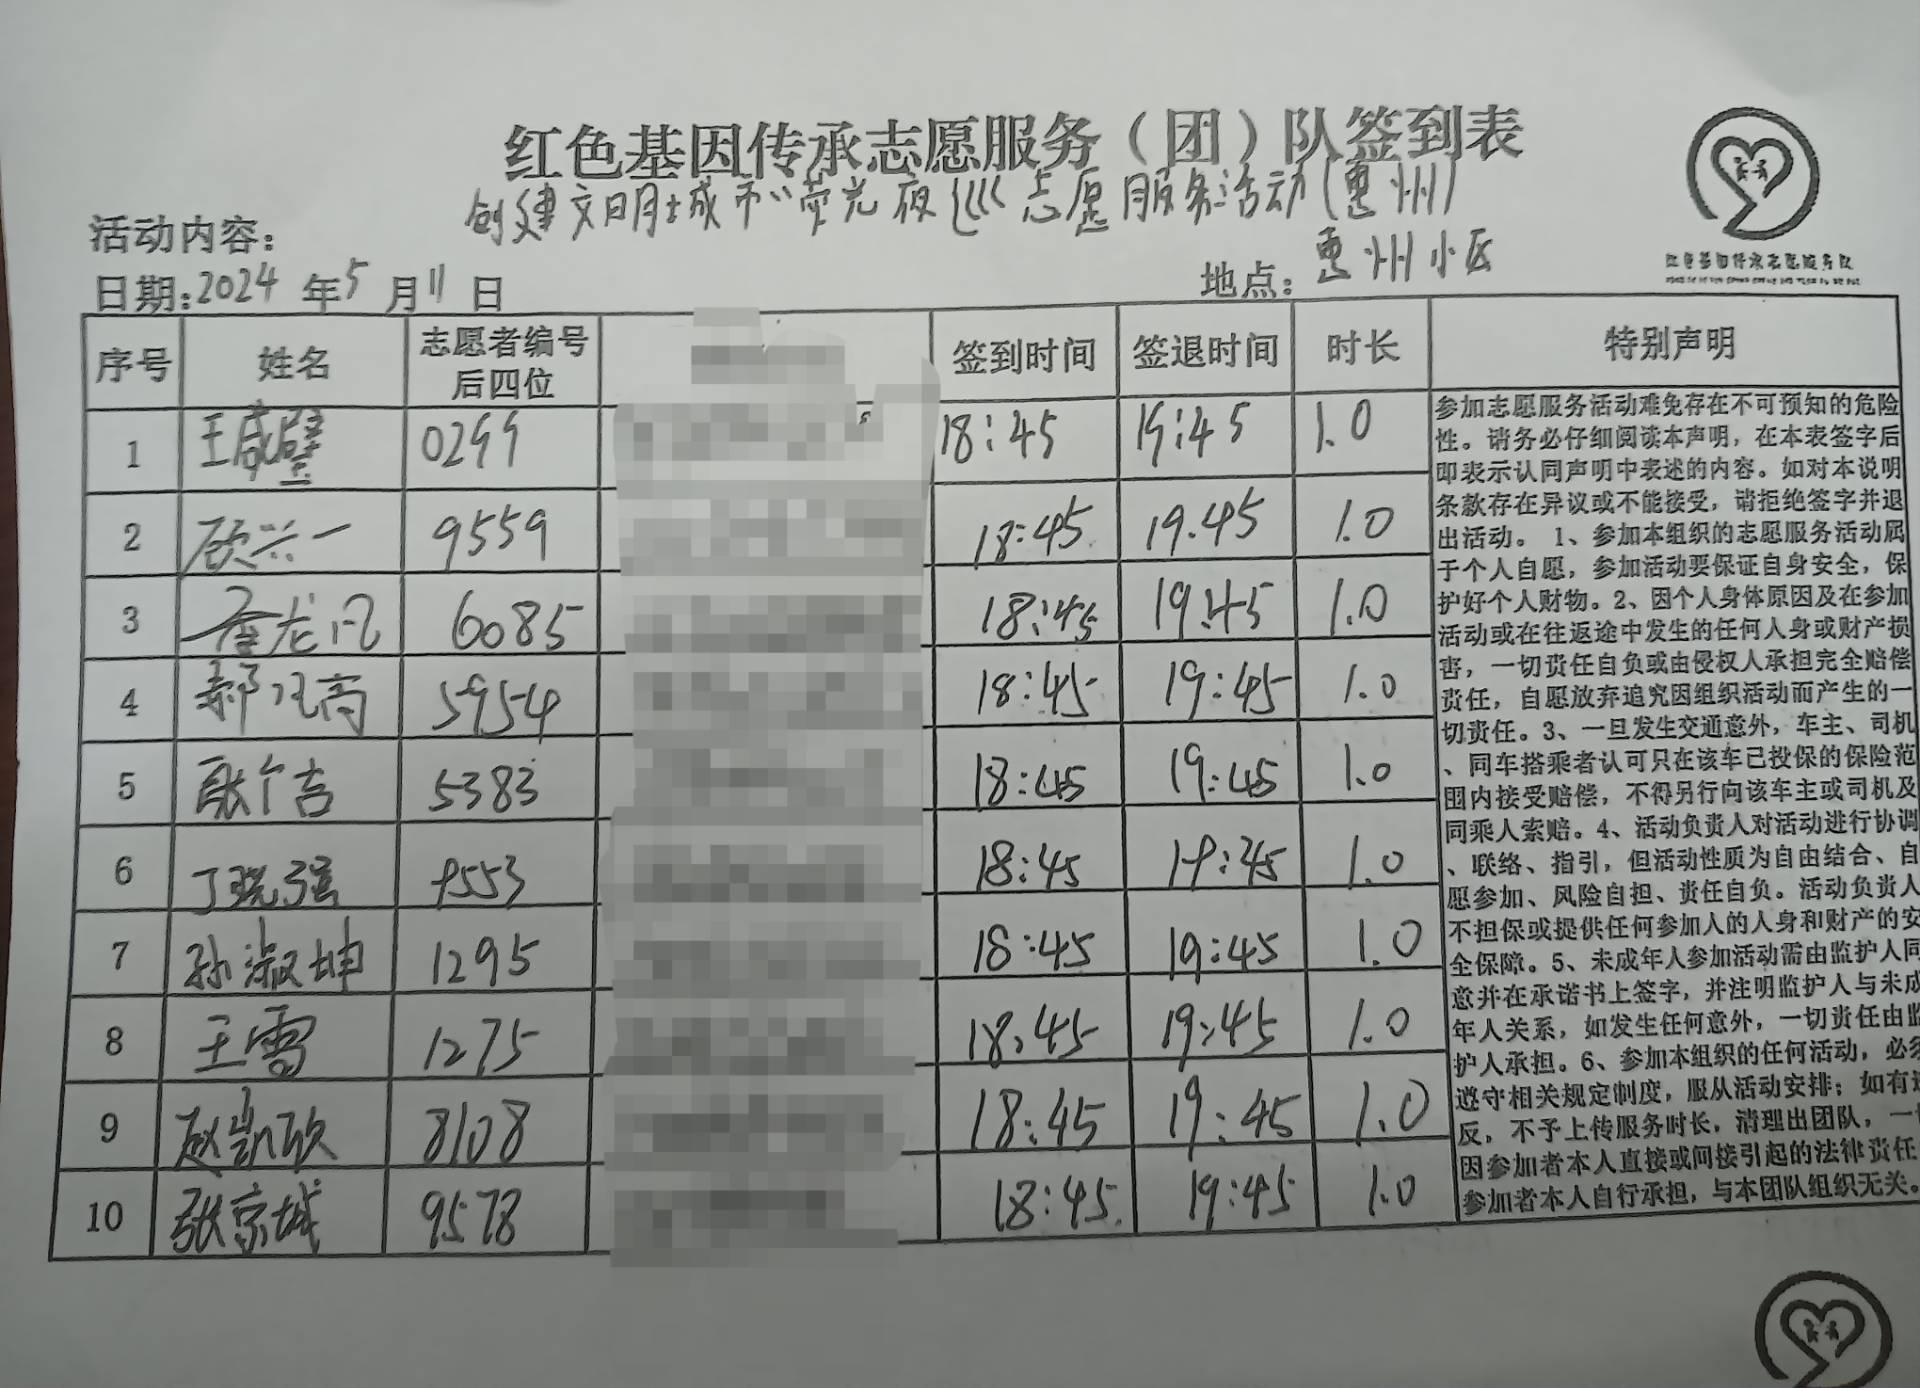 红色基因传承志愿服务（团）队签到表
创建文明城市"荧光夜巡"志愿服务活动(惠州)
活动内容：
日期:2024 年5 月11 日 地点：惠州小区
红色基因传承志愿服务队
序号 姓名 志愿者编号后四位 签到时间 签退时间 时长 特别声明
1 王咸璧 0299 18:45 19:45 1.0
2 顾兴一 9559 18:45 19.45 1.0
3 龙凡 6085 18:45 19:45 1.0
4 郝 高 5954 18:45 19:45 1.0
5 5383 18:45 19:45 1.0
6 丁晓强 9553 18:45 19:45 1.0
7 孙淑坤 1295 18:45 19:45 1.0
8 王雪 1275 18:45 19:45 1.0
9 赵凯欣 8108 18:45 19:45 1.0
10 张京城 9578 18:45 19:45 1.0
参加志愿服务活动难免存在不可预知的危险
性。请务必仔细阅读本声明，在本表签字后
即表示认同声明中表述的内容。如对本说明
条款存在异议或不能接受，请拒绝签字并退
出活动。 1、参加本组织的志愿服务活动属
于个人自愿，参加活动要保证自身安全，保
护好个人财物。2、因个人身体原因及在参加
活动或在往返途中发生的任何人身或财产损
害，一切责任自负或由侵权人承担完全赔偿
责任，自愿放弃追究因组织活动而产生的一
切责任。3、一旦发生交通意外，车主、司机
、同车搭乘者认可只在该车已投保的保险范
围内接受赔偿，不得另行向该车主或司机及
同乘人索赔。4、活动负责人对活动进行协调
、联络、指引，但活动性质为自由结合、自
愿参加、风险自担、责任自负。活动负责人
不担保或提供任何参加人的人身和财产的安
全保障。5、未成年人参加活动需由监护人同
意并在承诺书上签字，并注明监护人与未成
年人关系，如发生任何意外，一切责任由监
护人承担。6、参加本组织的任何活动，必须
遵守相关规定制度，服从活动安排；如有违
反，不予上传服务时长，清理出团队，一切
因参加者本人直接或间接引起的法律责任
参加者本人自行承担，与本团队组织无关。